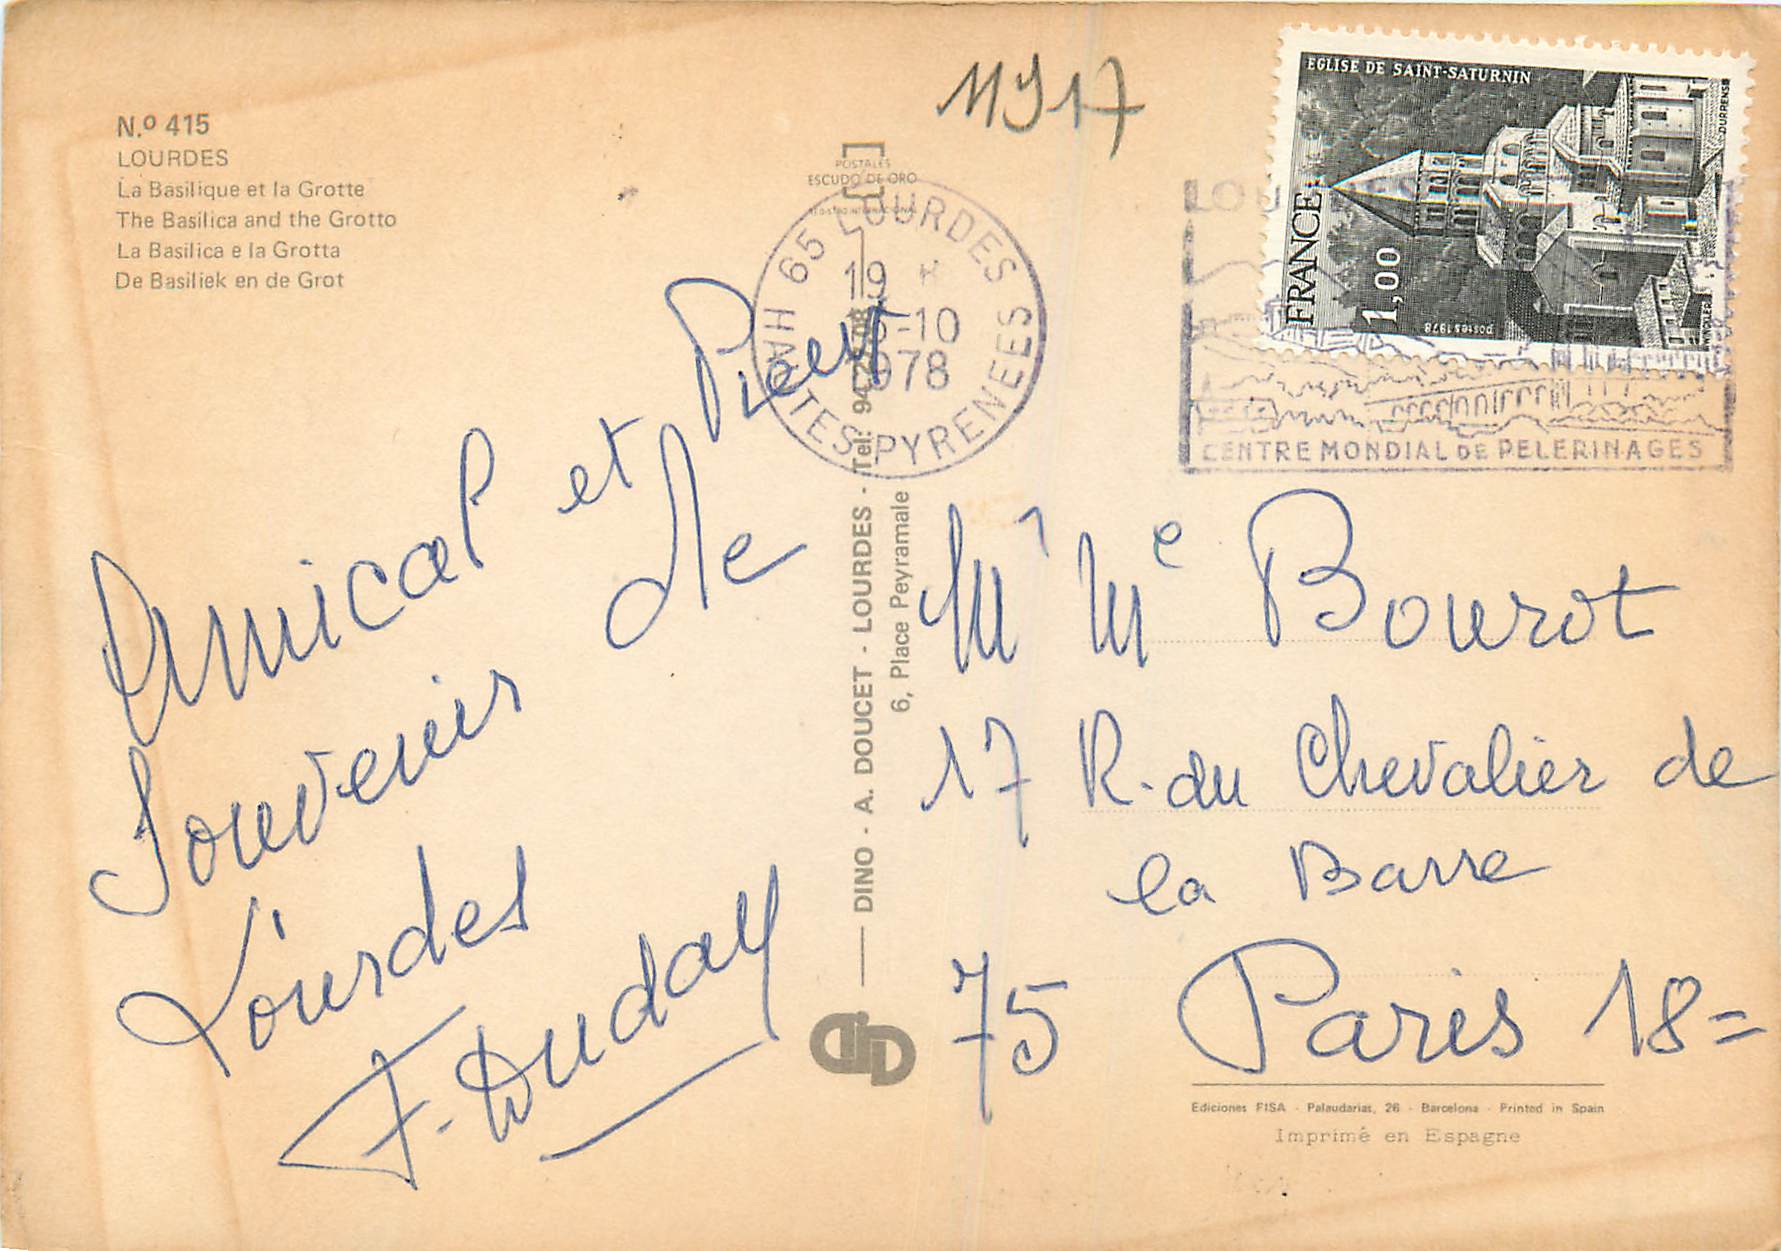 N.º 415
LOURDES
La Basilique et la Grotte
The Basilica and the Grotto
La Basilica e la Grotta
De Basiliek en de Grot
POSTALES
ESCUDO DE ORO
1917
EGLISE DE SAINT-SATURNIN
DURRENS
FRANCE
1,00
postes 1978
65 LOURDES
HAUTES PYRENEES
19 H
-10
1978
LOURDES
CENTRE MONDIAL DE PELERINAGES
DINO - A. DOUCET - LOURDES - Tel: 94
6, Place Peyramale
Amical et Pieux
Souvenir de
Lourdes
F. Duday
Mr Me Bourot
17 R. du Chevalier de
la Barre
75 Paris 18=
Ediciones FISA - Palaudarias, 26 - Barcelona - Printed in Spain
Imprimé en Espagne